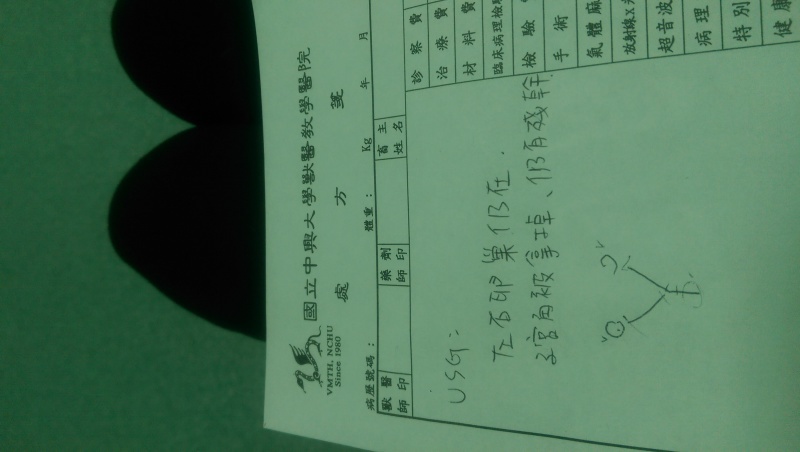 國立中興大學獸醫教學醫院
VMTH, NCHU
Since 1980
處方箋
病歷號碼：
體重： Kg 年 月
獸醫師印
藥劑師印
畜主姓名
診察費
治療費
材料費
臨床病理檢驗
檢驗
手術
氣體麻
放射線X光
超音波
病理
特別
健康
USG：
左右卵巢仍在．
子宮角被拿掉、仍有殘幹